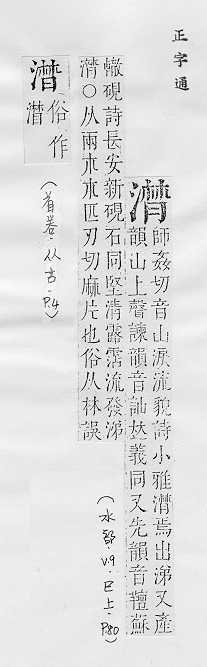 正字通
潸 師姦切音山涙流貌詩小雅潸焉出涕又產
韻山上聲諫韻音訕𠀤義同又先韻音羶蘇
轍硯詩長安新硯石同堅清露霑流發涕
潸○从兩朩朩匹刃切麻片也俗从林誤
(水部.V.9.巳上.P80)
潸 俗作
潸
(首卷.从古.P4)